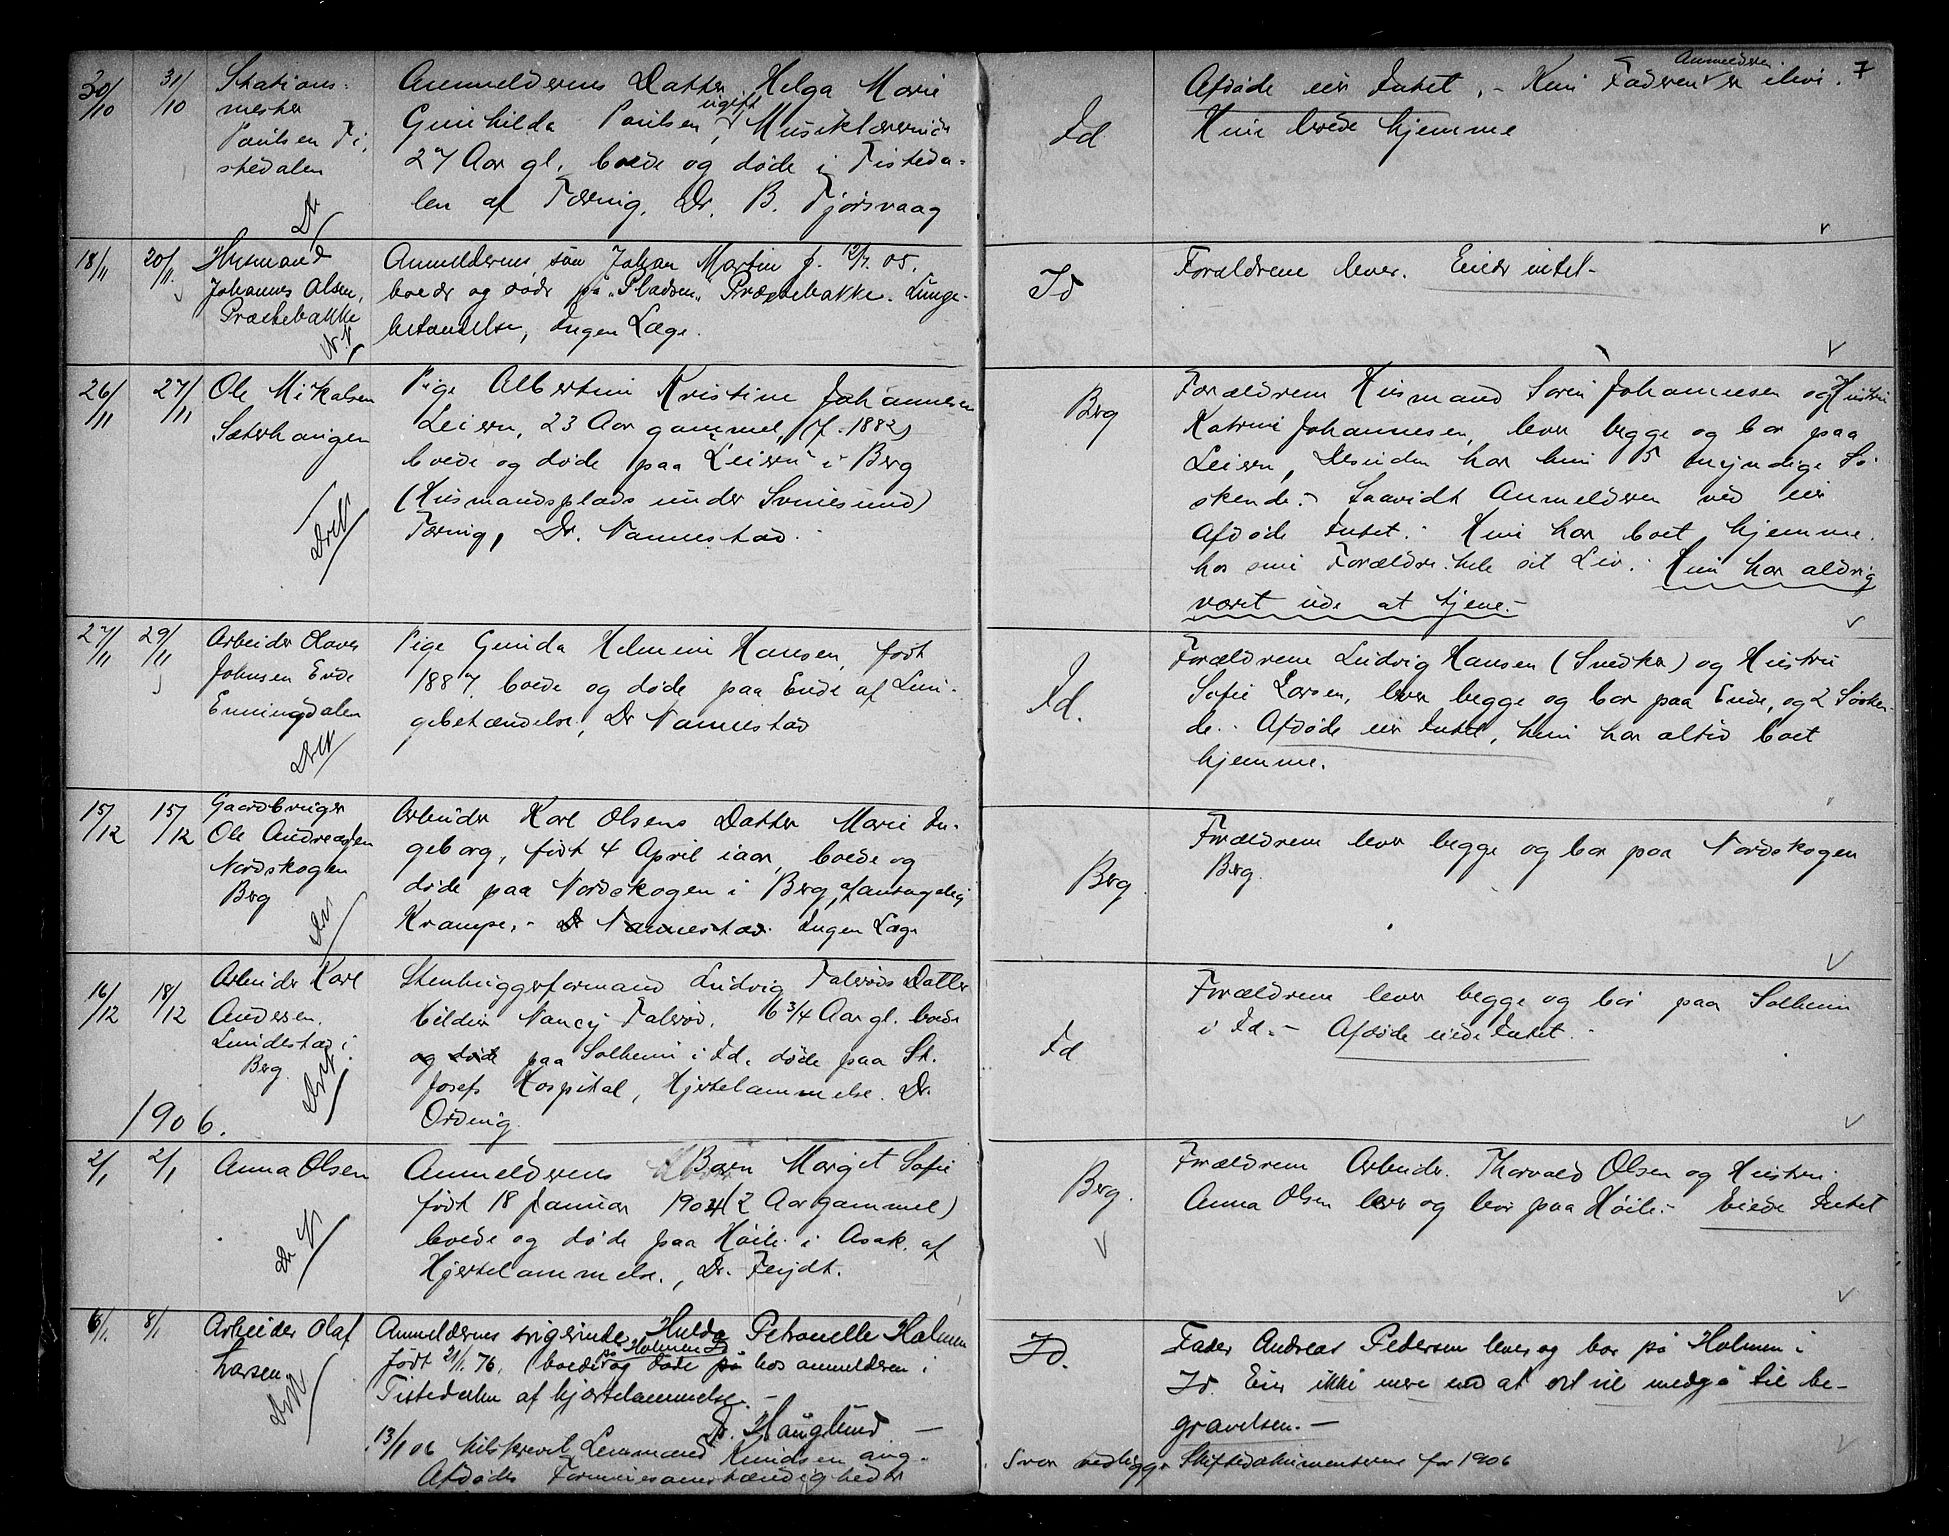 7
30/10 31/10 Stations-
mester
Paulsen Ti-
stedalen
Anmelderens Datter Helga Marie
Gunhilda Paulsen, ugift Musiklærerinde
27 Aar gl. boede og døde i Tisteda-
len af Tæring. Dr. B. Fjørsvaag
Id
Anmelderen
Afdøde eier Intet. - Kun Faderen er ilive.
Hun boede hjemme
18/11 20/11 Husmand
Johannes Olsen,
Præstebakke
Anmelderens søn Johan Martin f. 12/7. 05.
boede og døde på "Pladsen" Præstebakke. Lunge-
betændelse, Ingen Læge.
Id
Forældrene lever. Eiede intet -
26/11 27/11 Ole Mikalsen
Sæterhaugen
Pige Albertine Kristine Johannesen
Leieren, 23 Aar gammel, (f. 1882)
boede og døde paa Leieren i Berg
(Husmandsplads under Svinesund)
Tæring, Dr. Nannestad.
Berg
Forældrene Husmand Søren Johannesen og Hustru
Katrine Johannesen, lever begge og bor paa
Leieren, Desuden har hun 5 myndige Sø-
skende. - Saavidt Anmelderen ved eier
Afdøde Intet. - Hun har boet hjemme
hos sine Forældre hele sit Liv. Hun har aldrig
været ude at tjene. -
27/11 29/11 Arbeider Olaves
Johnsen Ende
Enningdalen
Pige Gunda Helmine Hansen, født
1887, boede og døde paa Ende af Lun-
gebetændelse, Dr Nannestad
Id.
Forældrene Ludvig Hansen (Snedker) og Hustru
Sofie Larsen, lever begge og bor paa Ende, og 2 Søsken-
de. - Afdøde eier Intet, hun har altid boet
hjemme.
15/12 15/12 Gaardbruger
Ole Andreasen
Nordskogen
Berg
Arbeider Karl Olsens Datter Marie In-
geborg, født 4 April iaar, boede og
døde paa Nordskogen i Berg, af antagelig
Krampe. - Dr Nannestad. Ingen Læge
Berg
Forældrene lever begge og bor paa Nordskogen
Berg.
16/12 18/12 Arbeider Karl
Andersen.
Lundestad i
Berg.
Stenhuggerformand Ludvig Falerøds Datter
Hildur Nancy Falerød. 6 3/4 Aar gl. boede
og døde paa Solheim i Id. døde paa St.
Josefs Hospital, Hjertelammelse. Dr.
Ording.
Id
Forældrene lever begge og bor paa Solheim
i Id. - Afdøde eiede Intet. -
1906.
2/1 2/1 Anna Olsen
Anmelderens Barn Margit Sofie
født 18 Januar 1904 (2 Aar gammel)
boede og døde paa Høile i Asak. af
Hjertelammelse., Dr. Feydt.
Berg.
Forældrene Arbeider Thorvald Olsen og Hustru
Anna Olsen lever og bor paa Høile. - Eiede Intet
6/1. 8/1. Arbeider Olaf
Larsen
Anmeldernes svigerinde Hulda Petronelle Holmen
født 21/1. 76. boede på Holmen Id og døde på hos anmelderen i
Tistedalen af hjertelammelse. -
Dr. Hauglund. -
13/1 06 tilskrevet Lensmand Knudsen ang.
Afdødes Formuesomstændigheder
Id.
Fader Andreas Pedersen lever og bor på Holmen i
Id. Eier ikke mere end at det vil medgå til be-
gravelsen. -
Svar vedligger Skiftedokumenterne for 1906